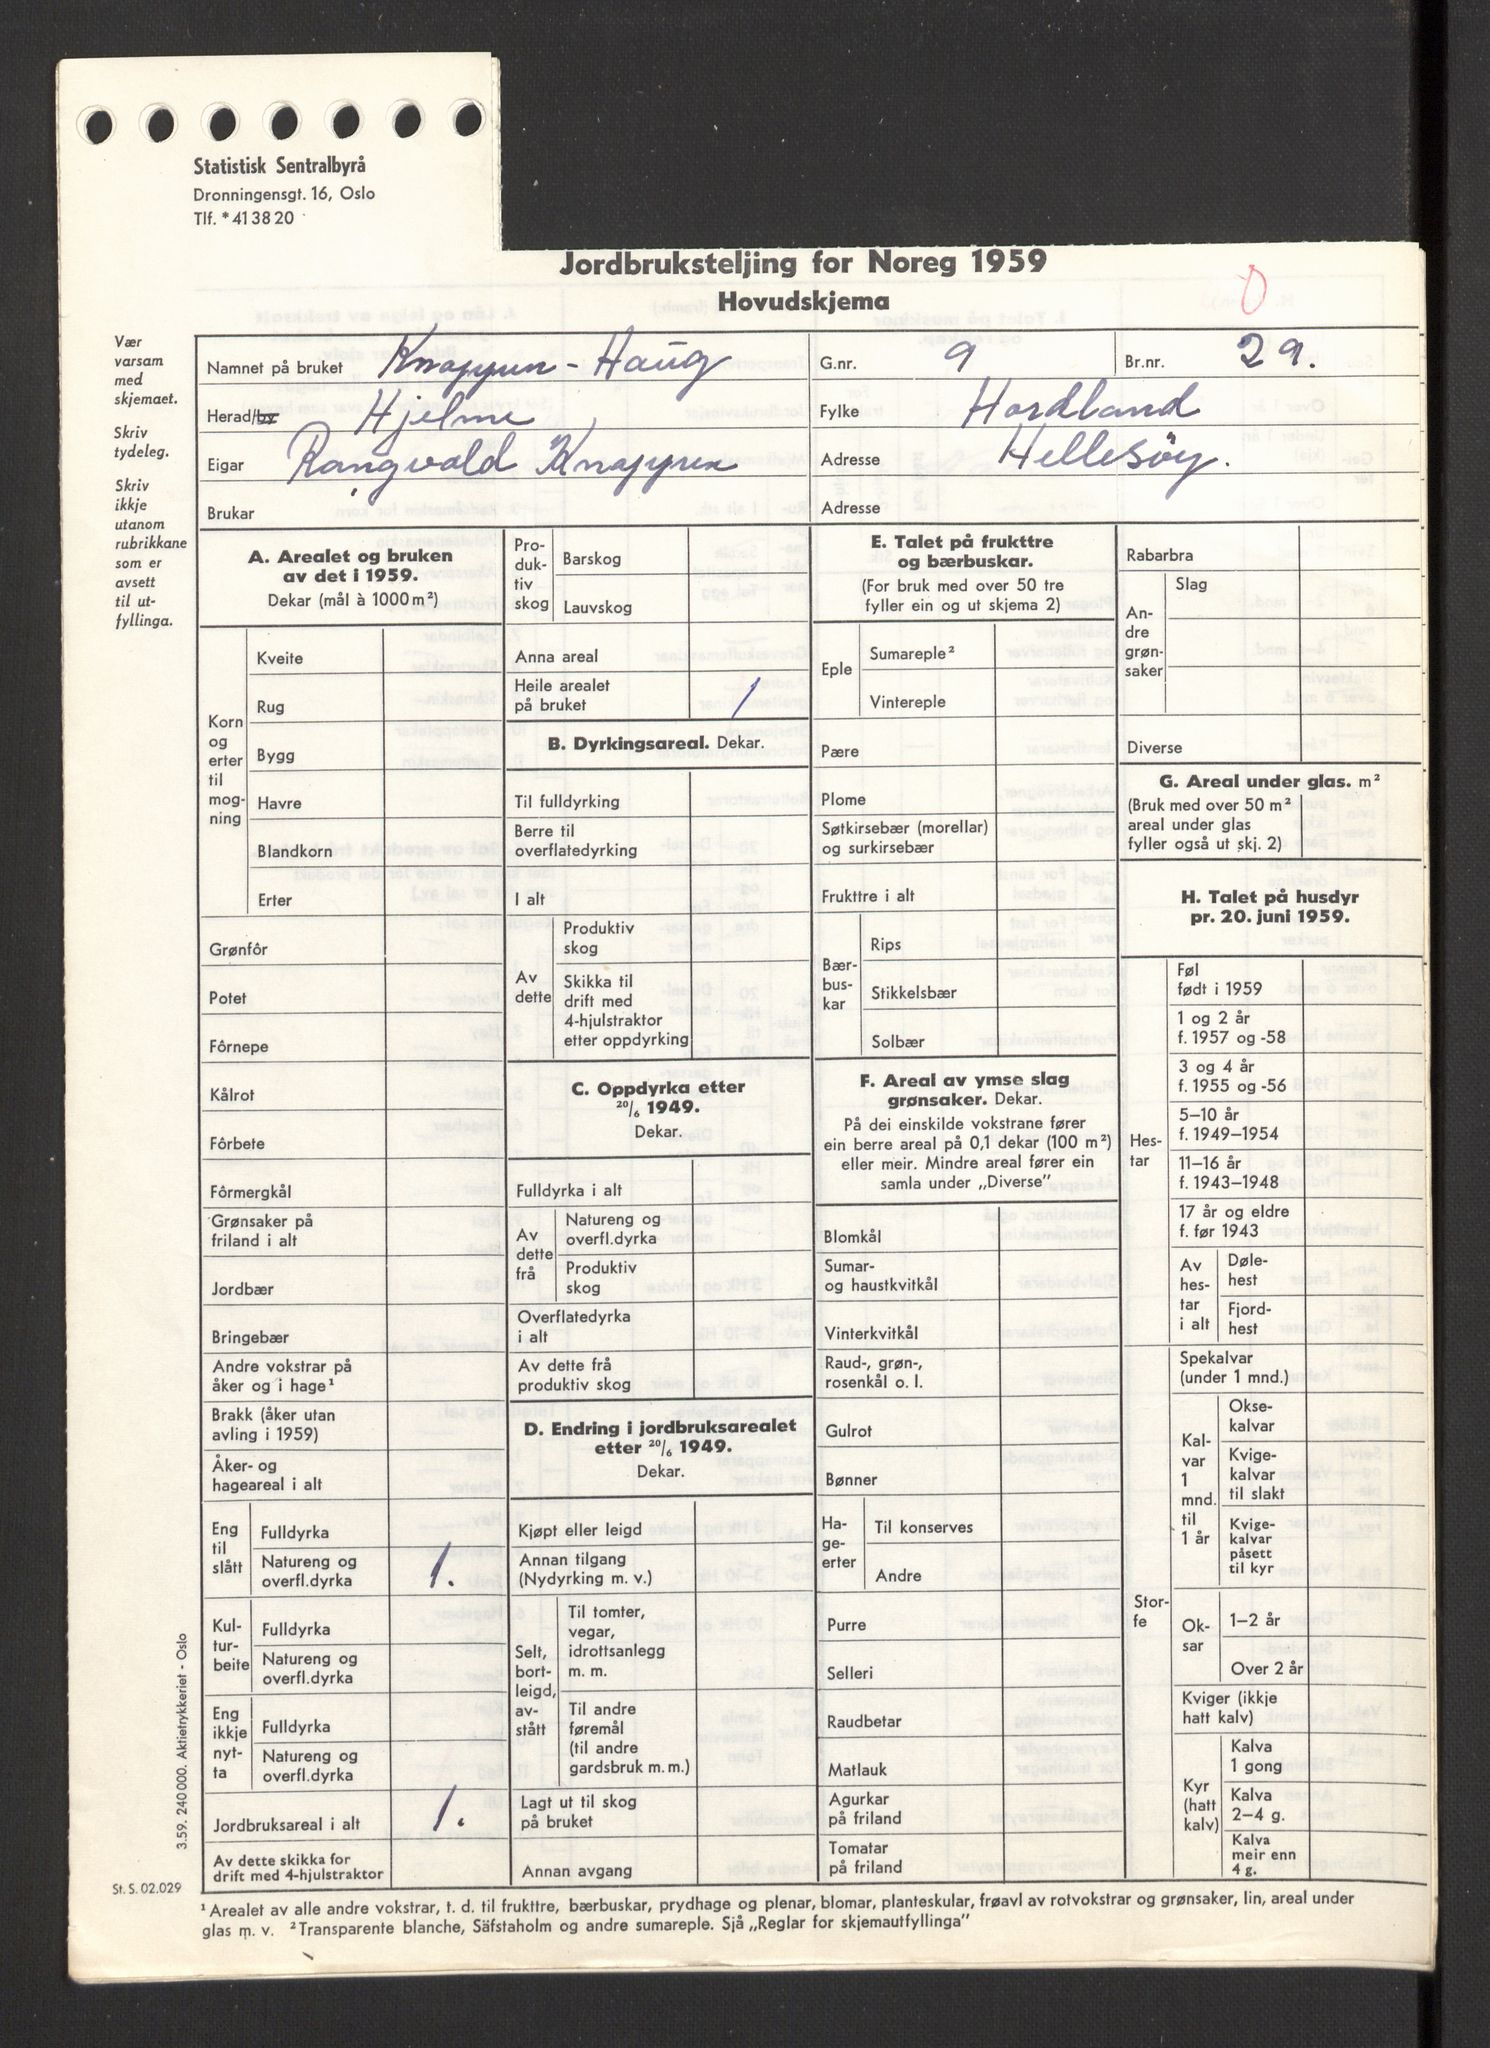 Statistisk Sentralbyrå
Dronningensgt. 16, Oslo
Tlf. * 41 38 20
Jordbruksteljing for Noreg 1959
Hovudskjema
Vær
varsam
med
skjemaet.
Skriv
tydeleg.
Skriv
ikkje
utanom
rubrikkane
som er
avsett
til ut-
fyllinga.
Namnet på bruket Knappen - Haug G.nr. 9 Br.nr. 29.
Herad/by Hjelme Fylke Hordland
Eigar Rangvald Knappen Adresse Hellesöy.
Brukar Adresse
A. Arealet og bruken
av det i 1959.
Dekar (mål à 1000 m²)
Korn
og
erter
til
mog-
ning
Kveite
Rug
Bygg
Havre
Blandkorn
Erter
Grønfôr
Potet
Fôrnepe
Kålrot
Fôrbete
Fôrmergkål
Grønsaker på
friland i alt
Jordbær
Bringebær
Andre vokstrar på
åker og i hage¹
Brakk (åker utan
avling i 1959)
Åker- og
hageareal i alt
Eng
til
slått
Fulldyrka
Natureng og
overfl.dyrka 1.
Kul-
tur-
beite
Fulldyrka
Natureng og
overfl.dyrka
Eng
ikkje
nyt-
ta
Fulldyrka
Natureng og
overfl.dyrka
Jordbruksareal i alt 1.
Av dette skikka for
drift med 4-hjulstraktor
Pro-
duk-
tiv
skog
Barskog
Lauvskog
Anna areal
Heile arealet
på bruket 1
B. Dyrkingsareal. Dekar.
Til fulldyrking
Berre til
overflatedyrking
I alt
Av
dette
Produktiv
skog
Skikka til
drift med
4-hjulstraktor
etter oppdyrking
C. Oppdyrka etter
20/6 1949.
Dekar.
Fulldyrka i alt
Av
dette
frå
Natureng og
overfl.dyrka
Produktiv
skog
Overflatedyrka
i alt
Av dette frå
produktiv skog
D. Endring i jordbruksarealet
etter 20/6 1949.
Dekar.
Kjøpt eller leigd
Annan tilgang
(Nydyrking m. v.)
Selt,
bort-
leigd,
av-
stått
Til tomter,
vegar,
idrottsanlegg
m. m.
Til andre
føremål
(til andre
gardsbruk m. m.)
Lagt ut til skog
på bruket
Annan avgang
E. Talet på frukttre
og bærbuskar.
(For bruk med over 50 tre
fyller ein og ut skjema 2)
Eple
Sumareple²
Vintereple
Pære
Plome
Søtkirsebær (morellar)
og surkirsebær
Frukttre i alt
Bær-
bus-
kar
Rips
Stikkelsbær
Solbær
F. Areal av ymse slag
grønsaker. Dekar.
På dei einskilde vokstrane fører
ein berre areal på 0,1 dekar (100 m²)
eller meir. Mindre areal fører ein
samla under „Diverse”
Blomkål
Sumar-
og haustkvitkål
Vinterkvitkål
Raud-, grøn-,
rosenkål o. l.
Gulrot
Bønner
Ha-
ge-
erter
Til konserves
Andre
Purre
Selleri
Raudbetar
Matlauk
Agurkar
på friland
Tomatar
på friland
Rabarbra
An-
dre
grøn-
saker
Slag
Diverse
G. Areal under glas. m²
(Bruk med over 50 m²
areal under glas
fyller også ut skj. 2)
H. Talet på husdyr
pr. 20. juni 1959.
Hes-
tar
Føl
født i 1959
1 og 2 år
f. 1957 og -58
3 og 4 år
f. 1955 og -56
5–10 år
f. 1949–1954
11–16 år
f. 1943–1948
17 år og eldre
f. før 1943
Av
hes-
tar
i alt
Døle-
hest
Fjord-
hest
Stor-
fe
Spekalvar
(under 1 mnd.)
Kal-
var
1
mnd.
til
1 år
Okse-
kalvar
Kvige-
kalvar
til slakt
Kvige-
kalvar
påsett
til kyr
Ok-
sar
1–2 år
Over 2 år
Kviger (ikkje
hatt kalv)
Kyr
(hatt
kalv)
Kalva
1 gong
Kalva
2–4 g.
Kalva
meir enn
4 g.
3.59. 240 000. Aktietrykkeriet - Oslo
St. S. 02.029
¹ Arealet av alle andre vokstrar, t. d. til frukttre, bærbuskar, prydhage og plenar, blomar, planteskular, frøavl av rotvokstrar og grønsaker, lin, areal under
glas m. v. ² Transparente blanche, Säfstaholm og andre sumareple. Sjå „Reglar for skjemautfyllinga”